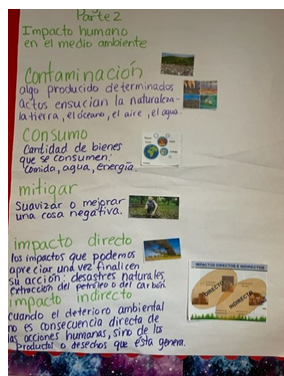 Parte 2
Impacto humano
en el medio ambiente
Contaminación
algo producido determinados
actos ensucian la naturaleza-
la tierra, el océano, el aire, el agua.
Consumo
Cantidad de bienes
que se consumen:
comida, agua, energía.
mitigar
Suavizar o mejorar
una cosa negativa.
impacto directo
los impactos que podemos
apreciar una vez finalicen
su acción: desastres naturales,
extracción del petróleo o del carbón.
impacto indirecto
cuando el deterioro ambiental
no es consecuencia directa de
las acciones humanas, sino de los
productos o desechos que ésta genera.
IMPACTOS DIRECTOS E INDIRECTOS
DIRECTOS
INDIRECTOS